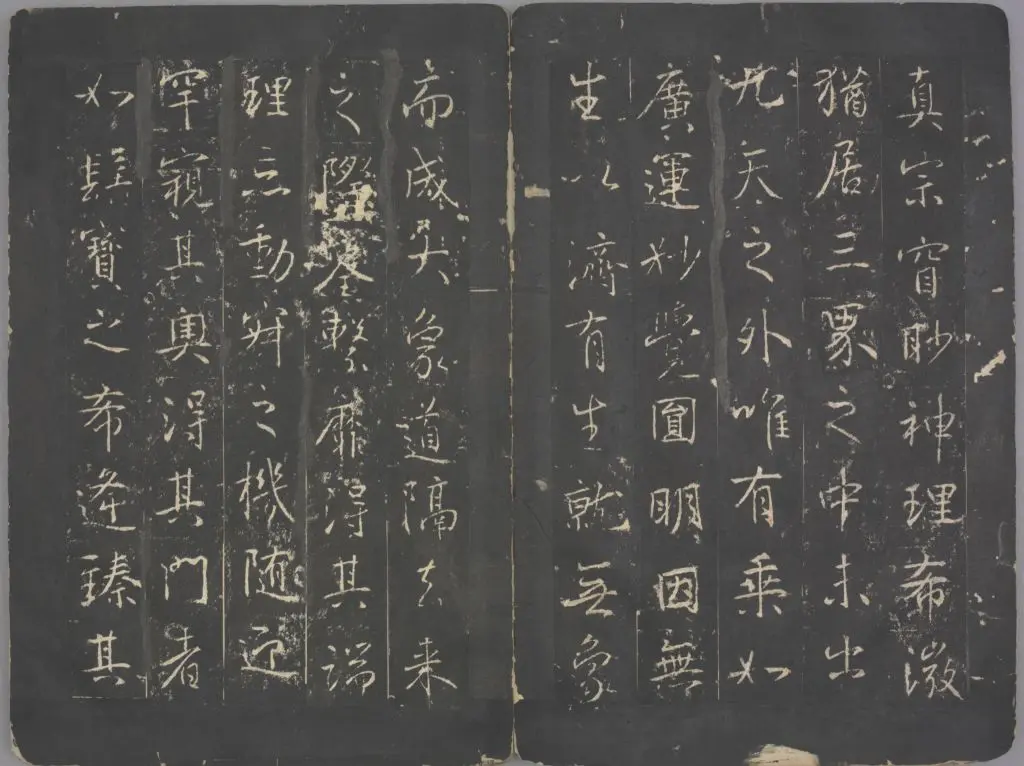 真宗窅眇神理希微
猶居三界之中未出
九天之外唯有乘如
廣運妙覺圓明因無
生以濟有生就無象
而成大象道隔去来
之際筌繫靡得其端
理忘動寂之機随迎
罕窺其奥得其門者
如髻寶之希逢臻其